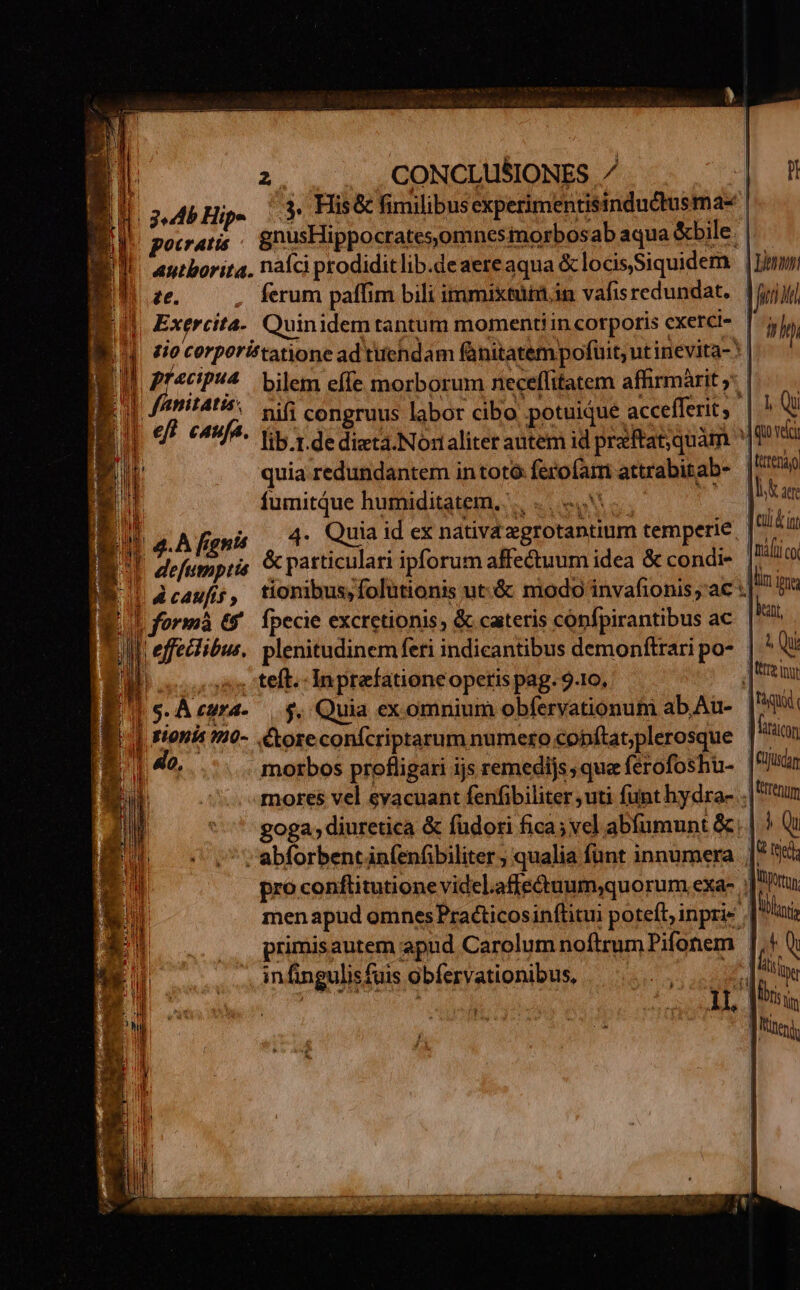 2. CONCLUSIONES
3. Ab Hip-
pocratis
authorita.
te.
Exercita-
tio corporis
præcipua
sanitatis
est causa.
3. His & similibus experimentis inductus ma-
gnus Hippocrates, omnes morbos ab aqua & bile
nasci prodidit lib. de aere aqua & locis, Siquidem
serum passim bili immixtum in vasis redundat.
Quin idem tantum momenti in corporis exerci-
tatione ad tuendam sanitatem posuit, ut inevita-
bilem esse morborum necessitatem affirmàrit,
nisi congruus labor cibo potuique accesserit,
lib. 1. de diæta. Non aliter autem id præstat, quàm
quia redundantem in toto serosam attrabit ab-
sumitque humiditatem.
4. A signis
desumptis
à causis,
formâ &
effectibus.
4. Quia id ex nativa ægrotantium temperie
& particulari ipsorum affectuum idea & condi-
tionibus, solutionis ut & modo invasionis, ac
specie excretionis, & cæteris conspirantibus ac
plenitudinem seri indicantibus demonstrari po-
test. In præfatione operis pag. 9. 10.
5. A cura-
tionis mo-
do.
5. Quia ex omnium observationum ab Au-
ctore conscriptarum numero constat, plerosque
morbos profligari ijs remedijs, quæ serofos hu-
mores vel evacuant sensibiliter, uti sunt hydra-
goga, diuretica & sudorifica; vel absumunt &
absorbent insensibiliter, qualia sunt innumera
pro constitutione videl. affectuum, quorum exa-
men apud omnes Practicos institui potest, inpri-
primis autem apud Carolum nostrum Pisonem
in singulis suis observationibus.
II.